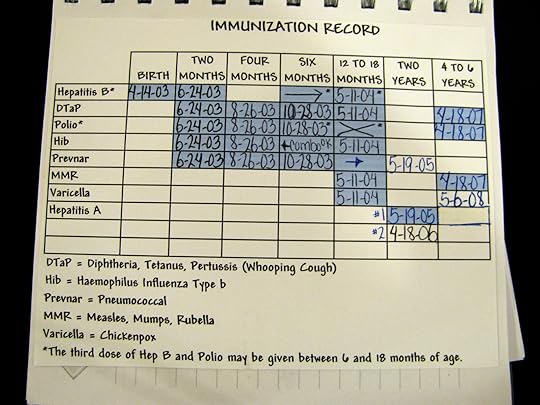 IMMUNIZATION RECORD
BIRTH TWO MONTHS FOUR MONTHS SIX MONTHS 12 TO 18 MONTHS TWO YEARS 4 TO 6 YEARS
Hepatitis B* 4-14-03 6-24-03 → * 5-11-04*
DTaP 6-24-03 8-26-03 10-28-03 5-11-04 4-18-07
Polio* 6-24-03 8-26-03 10-28-03* * 4-18-07
Hib 6-24-03 8-26-03 ←combo 5-11-04
Prevnar 6-24-03 8-26-03 10-28-03 → 5-19-05
MMR 5-11-04 4-18-07
Varicella 5-11-04 5-6-08
Hepatitis A #1 5-19-05
#2 4-18-06
DTaP = Diphtheria, Tetanus, Pertussis (Whooping Cough)
Hib = Haemophilus Influenza Type b
Prevnar = Pneumococcal
MMR = Measles, Mumps, Rubella
Varicella = Chickenpox
*The third dose of Hep B and Polio may be given between 6 and 18 months of age.